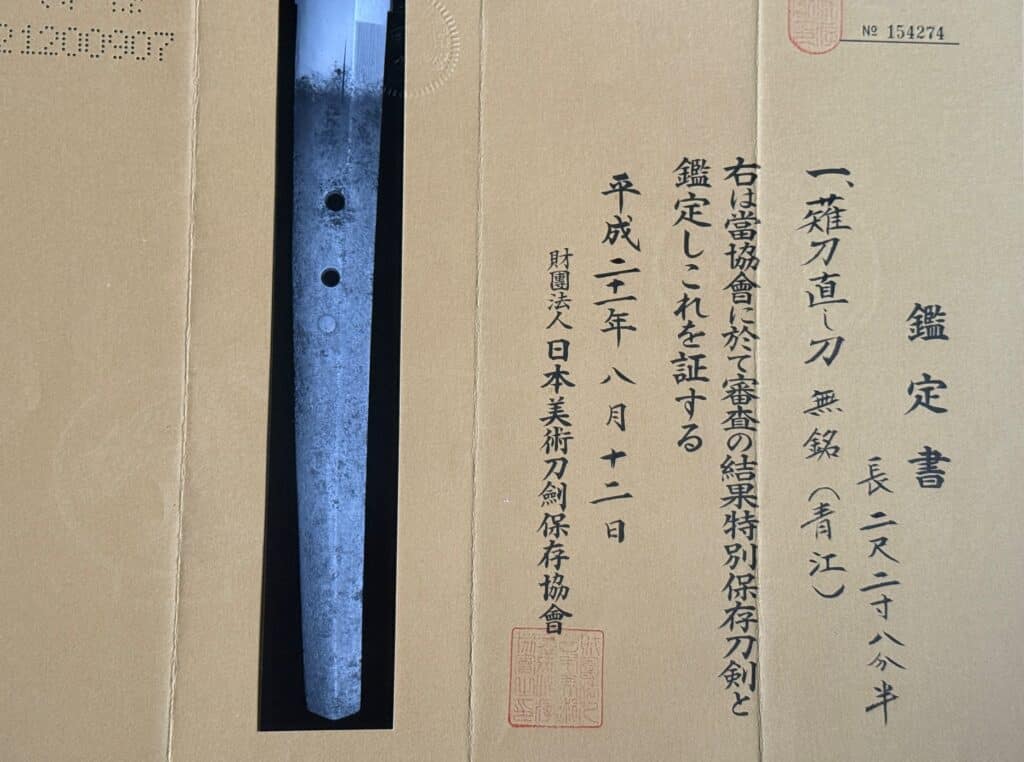 № 154274
鑑定書
一、薙刀直し刀 無銘（青江）
長 二尺二寸八分半
右は當協會に於て審査の結果特別保存刀剣と
鑑定しこれを証する
平成二十一年八月十二日
財團法人 日本美術刀劍保存協會
21200907